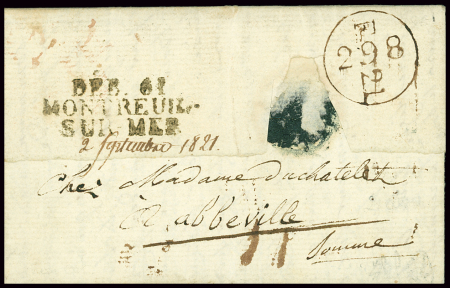 DÉB. 61
MONTREUIL-
SUR-MER
2 Septembre 1821
298
Chez Madame Duchatelet
à abbeville
Somme